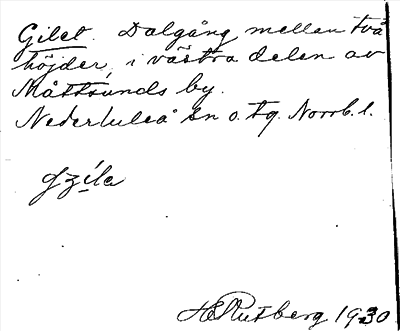 Gilet. Dalgång mellan två
höjder, i västra delen av
Måttsunds by.
Nederluleå sn o. tg. Norrb. l.
gzíla
H Rutberg 1930